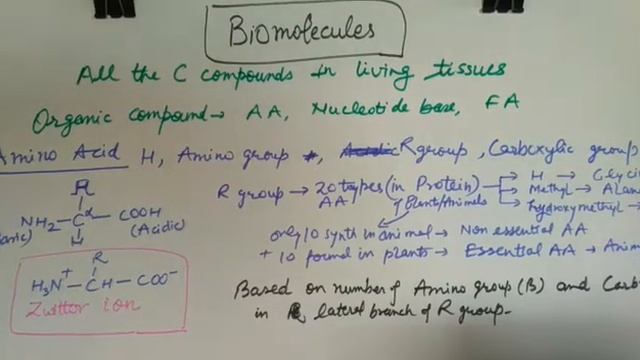 Biomolecules
All the C compounds in living tissues
Organic compound → AA, Nucleotide base, FA
Amino Acid H, Amino group, R group, Carboxylic group
R group → 20 types (in Protein) → H → Glycin
AA Plants/Animals → Methyl → Alan
→ hydroxymethyl →
R
NH₂ – Cα – COOH
H
(Acidic)
only 10 synth in animal → Non essential AA
+ 10 formed in plants → Essential AA → Anim
R
H₃N⁺ – CH – COO⁻
Zwitter ion
Based on number of Amino group (B) and Carb
in lateral branch of R group.